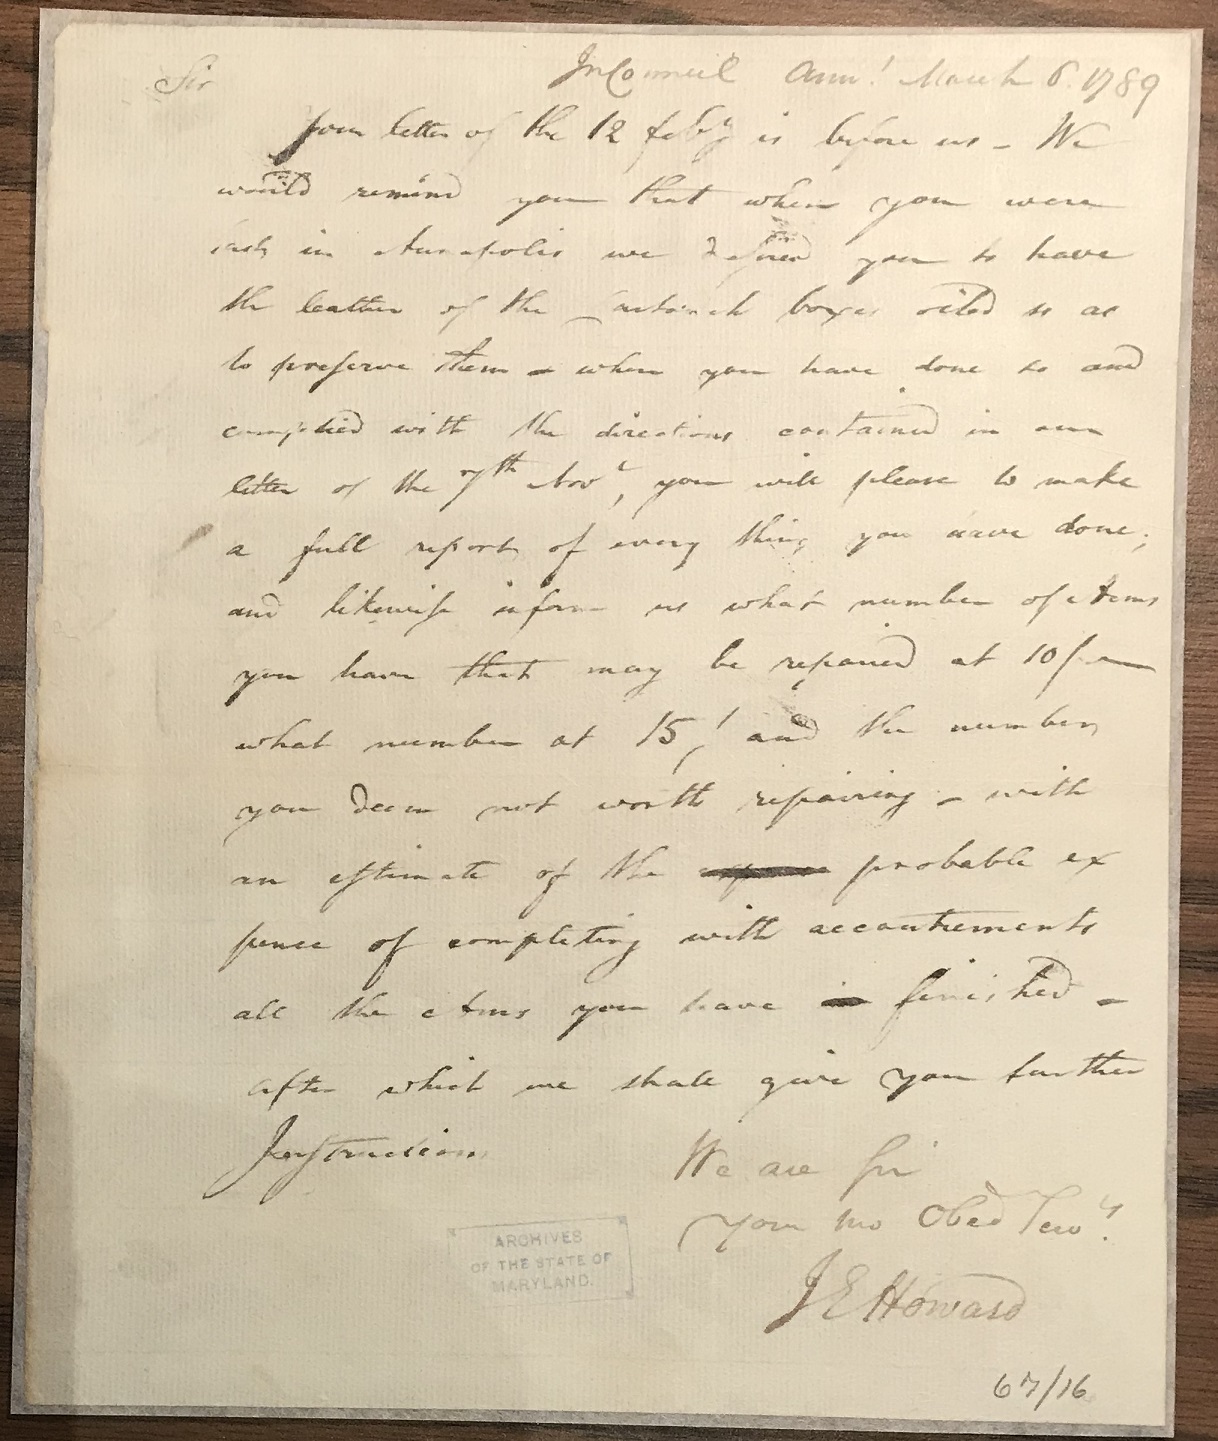 Sir In Council Ann.l March 6. 1789
Your letter of the 12 feby is before us - We
would remind you that when you were
last in Annapolis we desired you to have
the leather of the Cartouch boxes oiled so as
to preserve them - when you have done so and
complied with the directions contained in our
letter of the 7th Novr, you will please to make
a full report of every thing you have done;
and likewise inform us what number of Arms
you have that may be repaired at 10/
what number at 15/ and the number
you deem not worth repairing - with
an estimate of the probable ex
pence of completing with accoutrements
all the Arms you have finished -
after which we shall give you further
Instructions
We are Sir
Your mo Obed Servts.
J E Howard
ARCHIVES
OF THE STATE OF
MARYLAND.
67/16